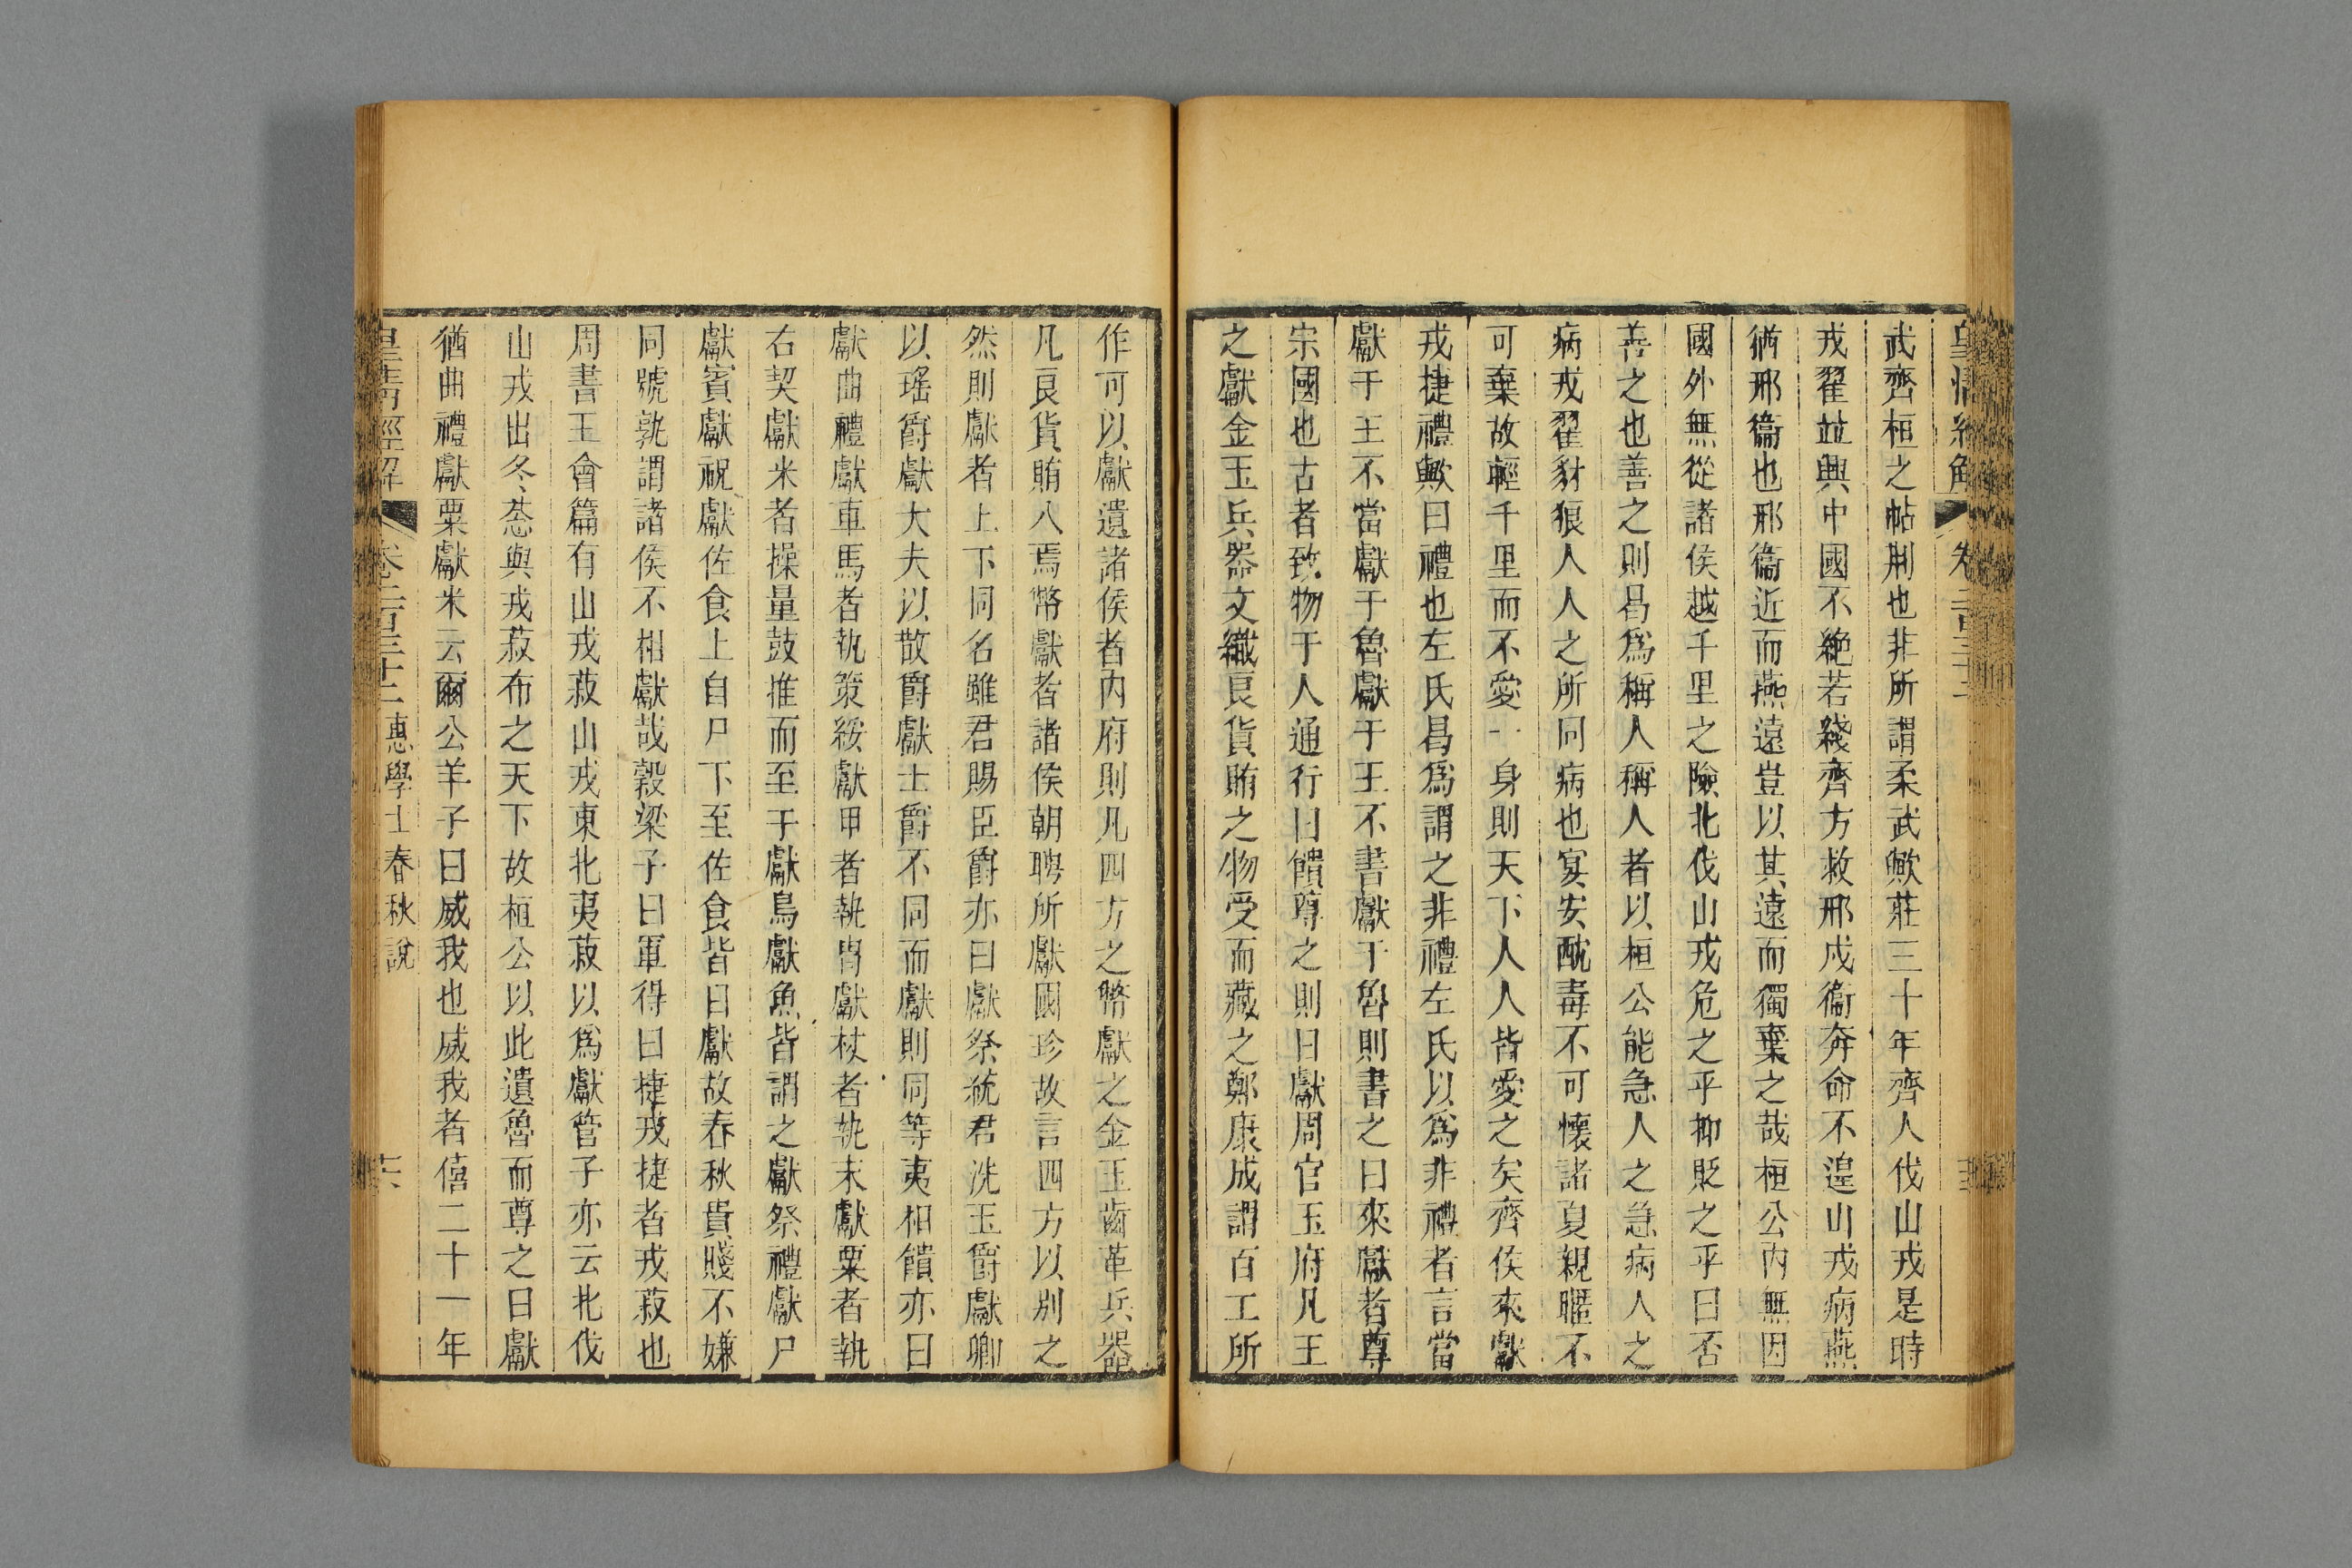 武齊桓之帖荆也非所謂柔武歟莊三十年齊人伐山戎是時
戎翟並興中國不絶若綫齊方救邢戍衞奔命不遑山戎病燕
猶邢衞也邢衞近而燕遠豈以其遠而獨棄之哉桓公内無因
國外無從諸侯越千里之險北伐山戎危之乎抑貶之乎曰否
善之也善之則曷爲稱人稱人者以桓公能急人之急病人之
病戎翟豺狼人人之所同病也宴安酖毒不可懷諸夏親暱不
可棄故輕千里而不愛一身則天下人人皆愛之矣齊侯來獻
戎捷禮歟曰禮也左氏曷爲謂之非禮左氏以爲非禮者言當
獻于王不當獻于魯獻于王不書獻于魯則書之曰來獻者尊
宗國也古者致物于人通行曰饋尊之則曰獻周官玉府凡王
之獻金玉兵器文織良貨賄之物受而藏之鄭康成謂百工所
作可以獻遺諸侯者内府則凡四方之幣獻之金玉齒革兵器
凡良貨賄入焉幣獻者諸侯朝聘所獻國珍故言四方以别之
然則獻者上下同名雖君賜臣爵亦曰獻祭統君洗玉爵獻卿
以瑤爵獻大夫以散爵獻士爵不同而獻則同等夷相饋亦曰
獻曲禮獻車馬者執策綏獻甲者執胄獻杖者執末獻粟者執
右契獻米者操量鼓推而至于獻鳥獻魚皆謂之獻祭禮獻尸
獻賓獻祝獻佐食上自尸下至佐食皆曰獻故春秋貴賤不嫌
同號孰謂諸侯不相獻哉穀梁子曰軍得曰捷戎捷者戎菽也
周書王會篇有山戎菽山戎東北夷菽以爲獻管子亦云北伐
山戎出冬葱與戎菽布之天下故桓公以此遺魯而尊之曰獻
猶曲禮獻粟獻米云爾公羊子曰威我也威我者僖二十一年
皇淸經解 卷二百三十二 惠學士春秋說 十六